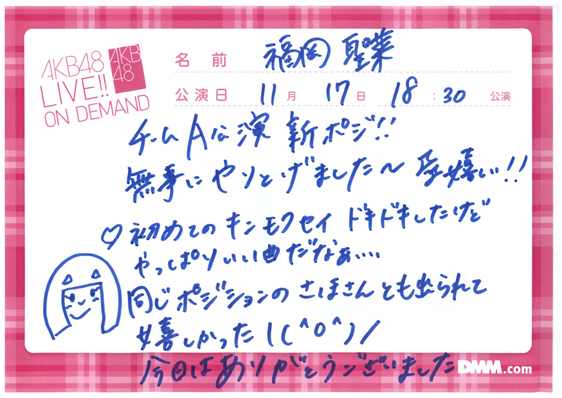 AKB48
LIVE!!
ON DEMAND
AKB
48
名前 福岡 聖菜
公演日 11月 17日 18:30 公演
チームA公演 新ポジ!!
無事にやりとげましたー 嬉しい!!
♡初めてのキンモクセイ ドキドキしたけど
やっぱりいい曲だなぁ....
同じポジションのさほさんとも出られて
嬉しかった\(^o^)/
今日はありがとうございました
DMM.com